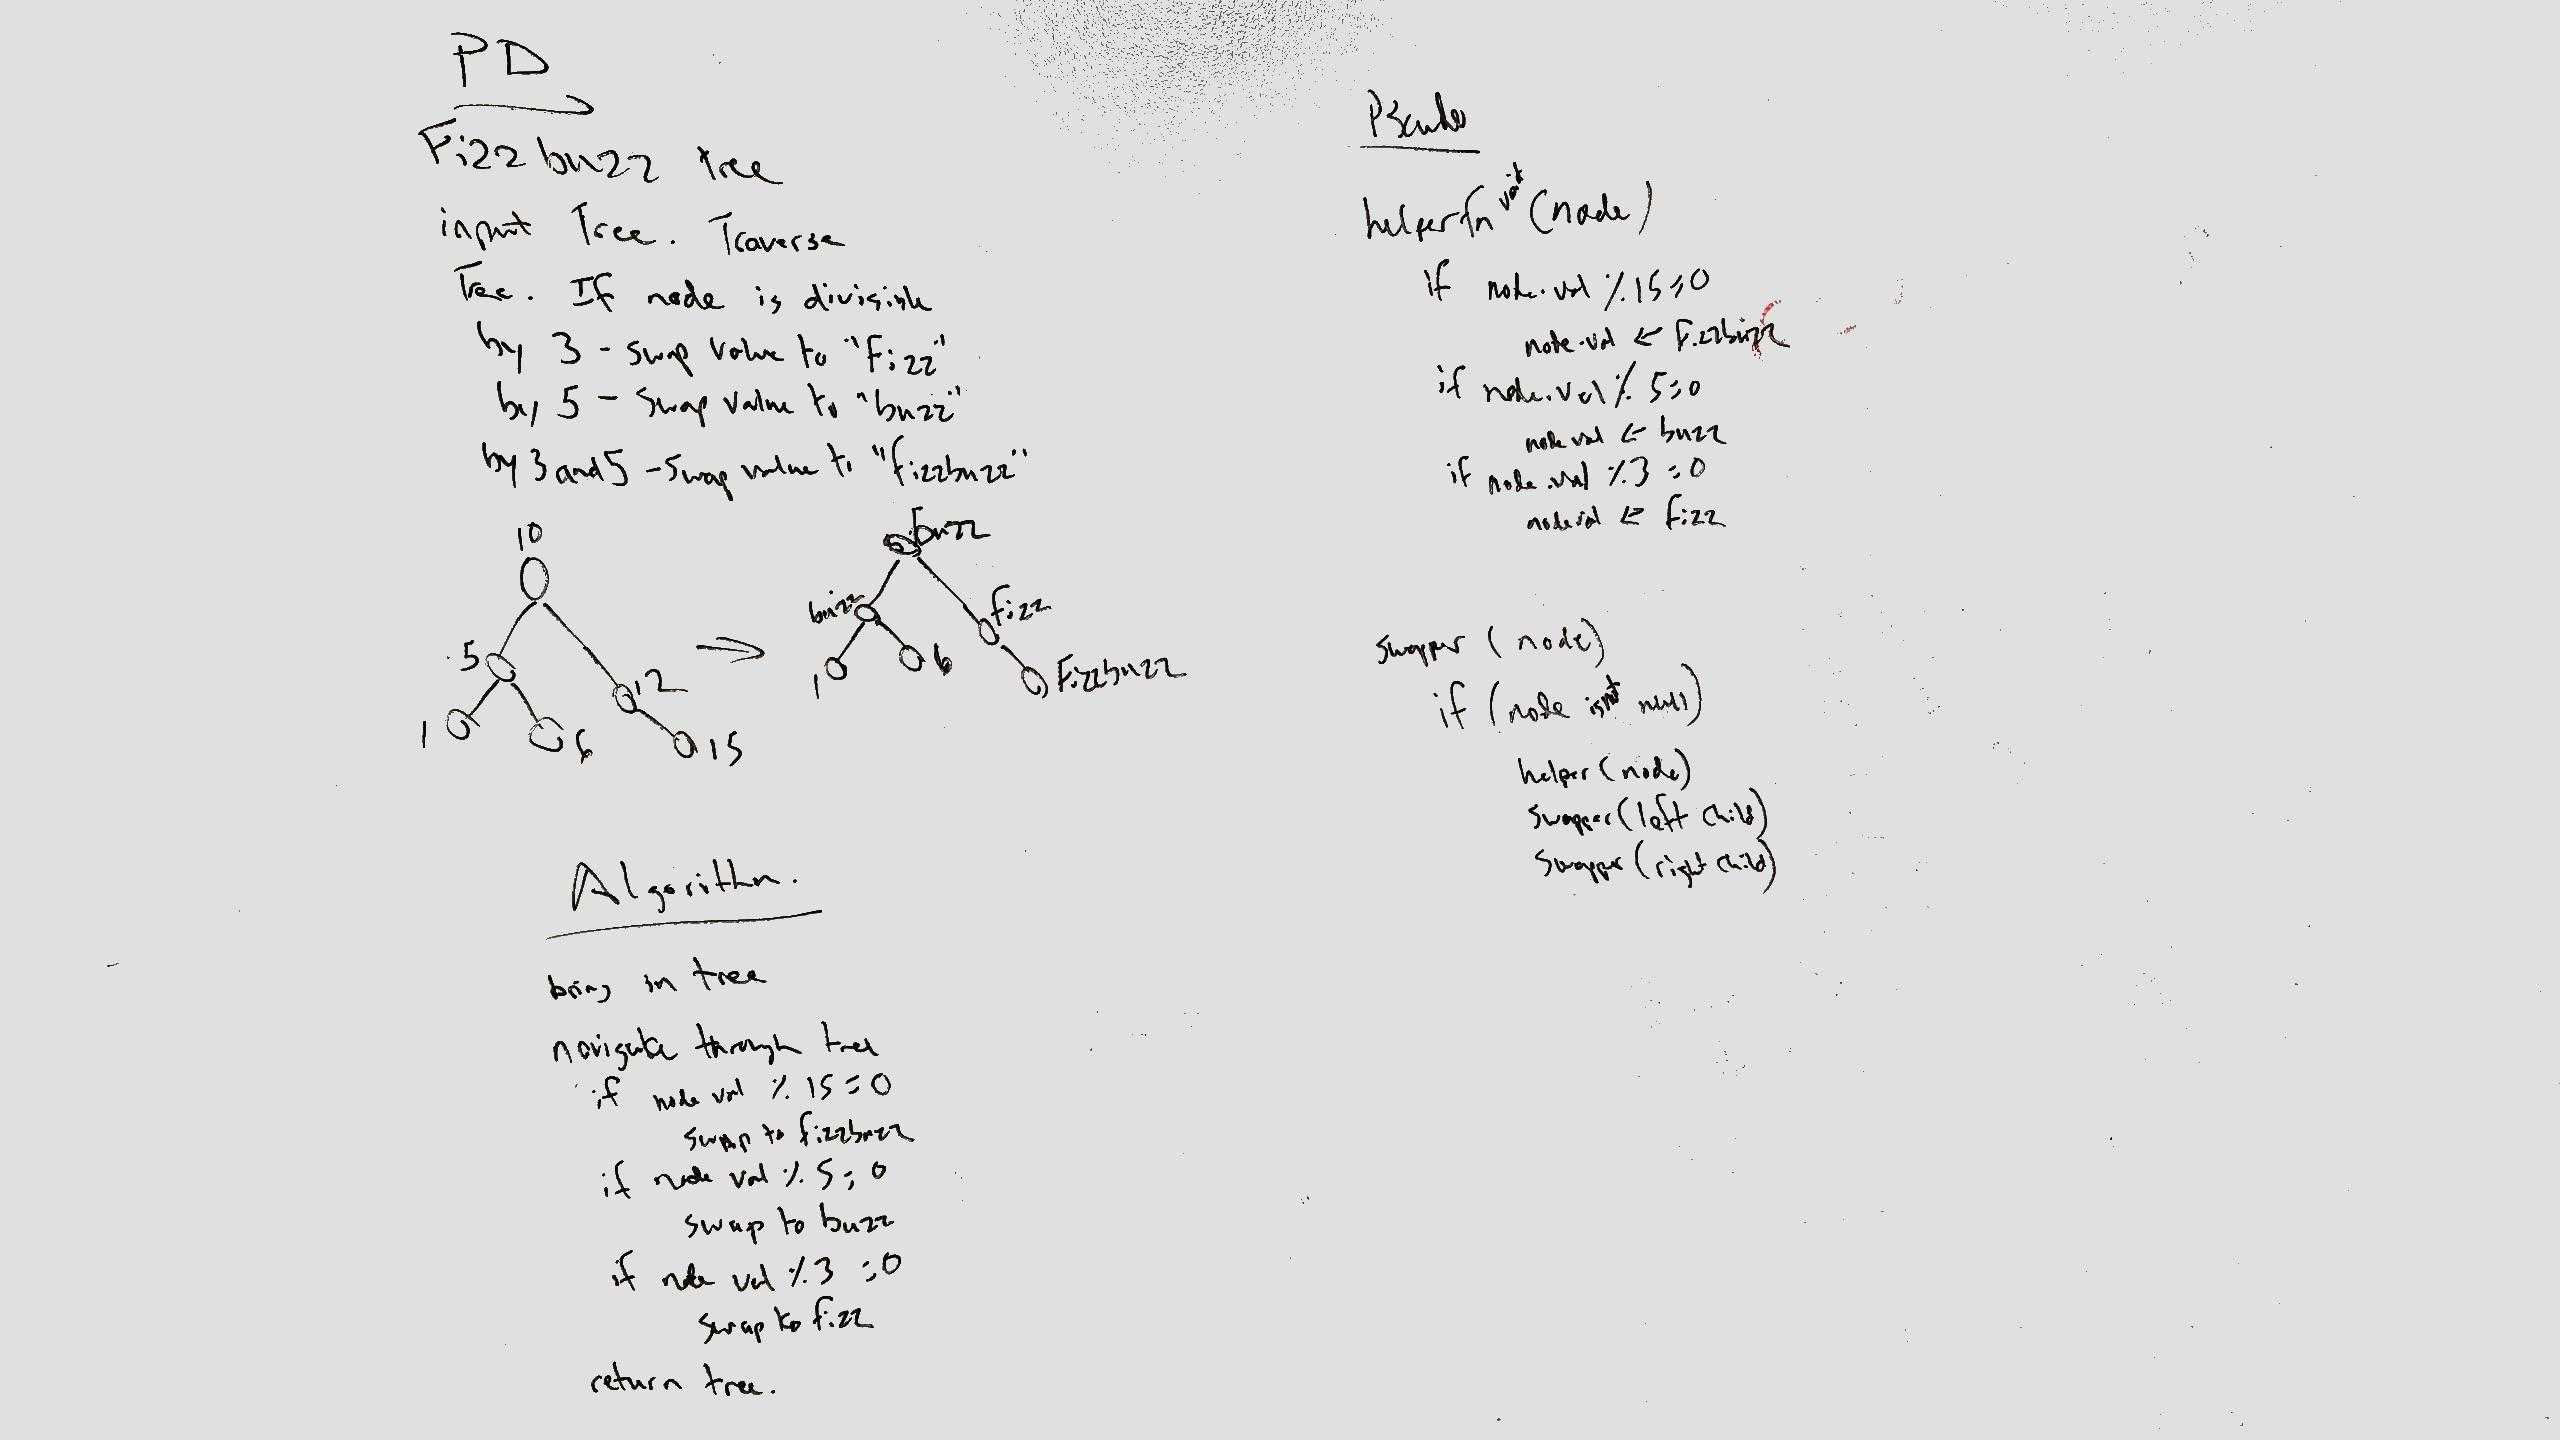 PD
Fizzbuzz tree
input Tree. Traverse
Tree. If node is divisible
by 3 - swap value to "Fizz"
by 5 - swap value to "buzz"
by 3 and 5 - swap value to "fizzbuzz"
10
5
12
1
6
15
buzz
buzz
fizz
1
6
Fizzbuzz
Algorithm.
bring in tree
navigate through tree
if node val % 15 = 0
swap to fizzbuzz
if node val % 5 = 0
swap to buzz
if node val % 3 = 0
swap to fizz
return tree.
helperfn (node)
if node.val % 15 = 0
node.val ← Fizzbuzz
if node.val % 5 = 0
node val ← buzz
if node.val % 3 = 0
node val ← fizz
swapper (node)
if (node is not null)
helper (node)
swapper (left child)
swapper (right child)